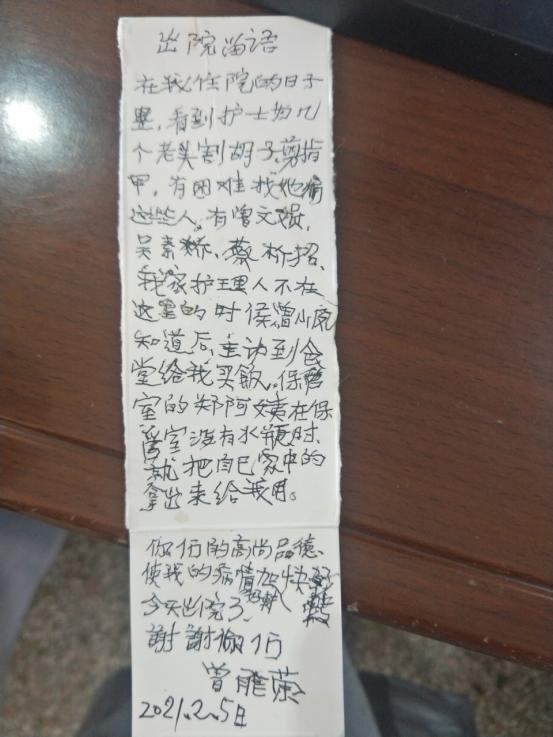 出院留语
在我住院的日子
里，看到护士为几
个老头割胡子.剪指
甲，有困难找她俩
这些人。有曾文娟，
吴素娇、蔡析招、
我家护理人不在
这里的时侯曾小
知道后，主动到食
堂给我买飯。保管
室的郑阿姨在保
管室没有水瓶时、
就把自已家中的
拿出来给我用。
你们的高尚品德、
使我的病情加快好转
今天出院了，
謝謝你们
曾 荣
2021.2.5日